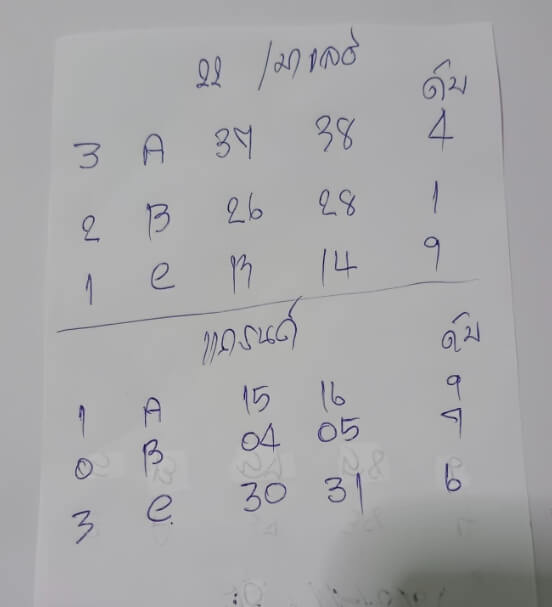 22 /มาเลย์
ดับ
3 A 37 38 4
2 B 26 28 1
1 C 13 14 9
แกรนด์
ดับ
1 A 15 16 9
0 B 04 05 7
3 C 30 31 6